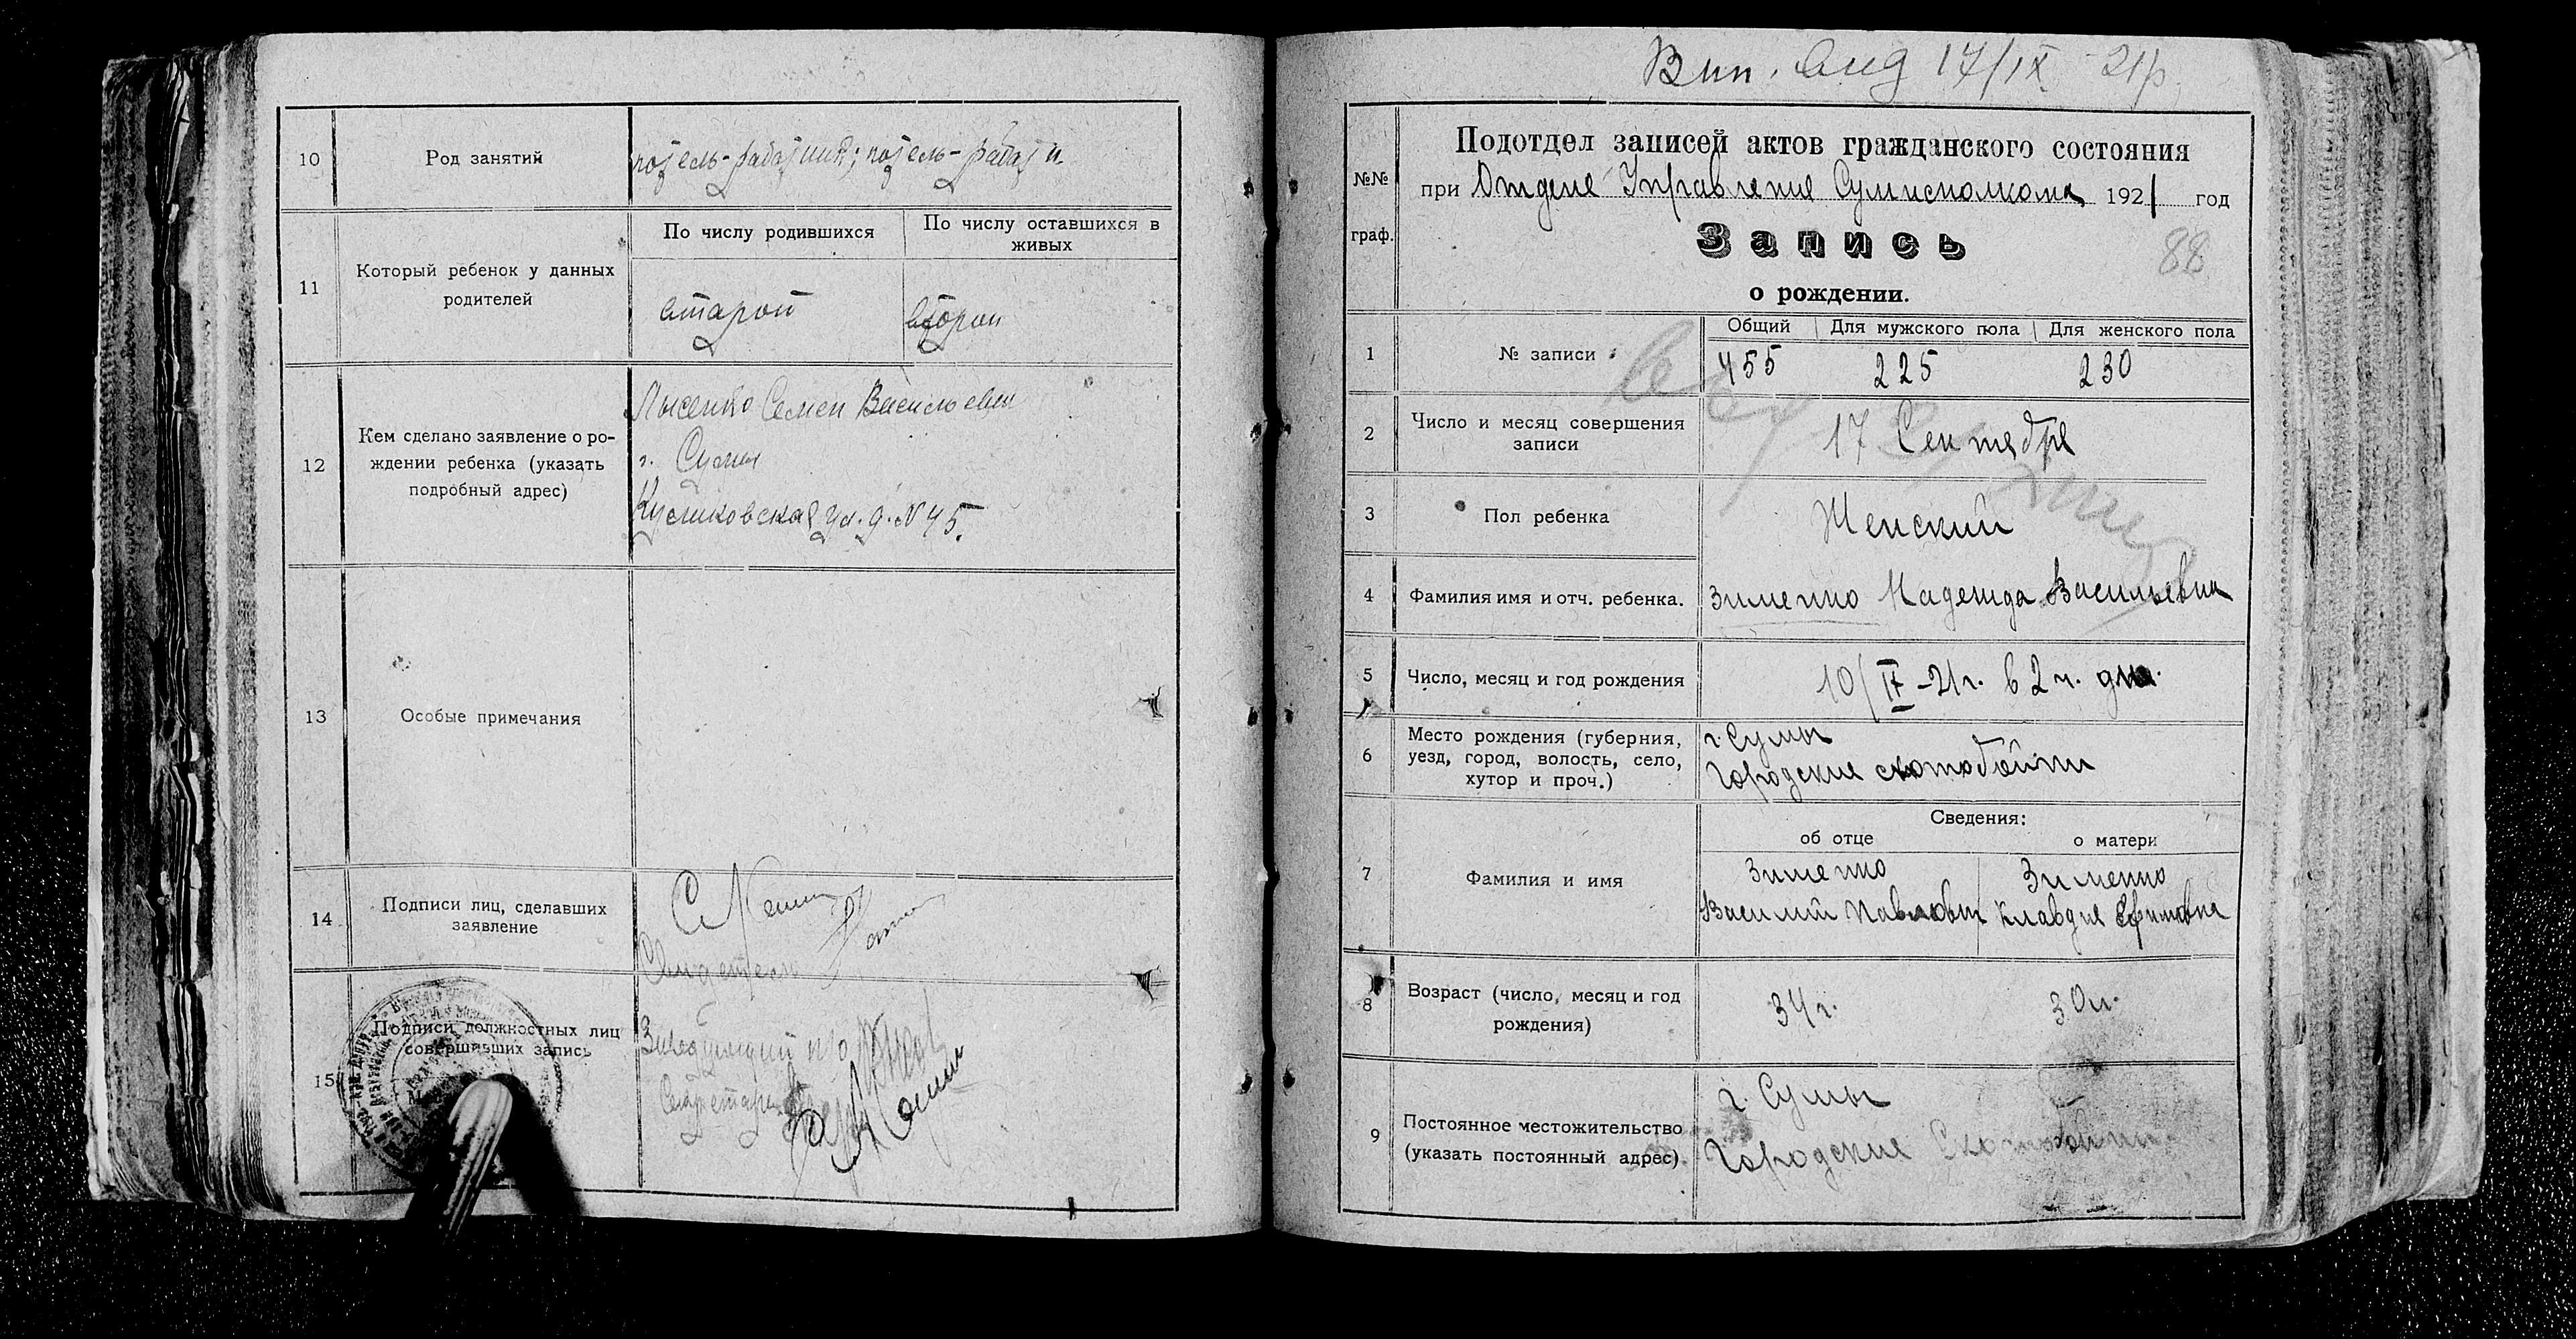 10
Род занятий
11
Который ребенок у данных
родителей
По числу родившихся
По числу оставшихся в
живых
второй
второй
12
Кем сделано заявление о ро-
ждении ребенка (указать
подробный адрес)
Лысенко Семен Васильевич
г. Сумы
ул. д. № 45.
13
Особые примечания
14
Подписи лиц, сделавших
заявление
15
Подписи должностных лиц
совершивших запись
Заведующий п/о
Секретарь
17/IX 21р
№№
граф.
Подотдел записей актов гражданского состояния
при Отделе Управления Сумисполкома 1921 год
Запись
88
о рождении.
1
№ записи
Общий
Для мужского пола
Для женского пола
455
225
230
2
Число и месяц совершения
записи
17 Сентября
3
Пол ребенка
Женский
4
Фамилия имя и отч. ребенка.
Зименко Надежда Васильевна
5
Число, месяц и год рождения
10/IX-21г. в 2 ч. дня.
6
Место рождения (губерния,
уезд, город, волость, село,
хутор и проч.)
г. Сумы
Городские скотобойни
Сведения:
об отце
о матери
7
Фамилия и имя
Зименко
Василий Павлович
Зименко
Клавдия Ефимовна
8
Возраст (число, месяц и год
рождения)
34 г.
30 л.
9
Постоянное местожительство
(указать постоянный адрес)
г. Сумы
Городские Скотобойни